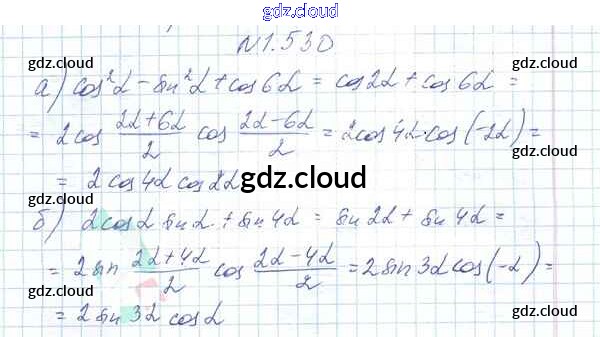 gdz.cloud
N1.530
gdz.cloud gdz.cloud
а) cos²α - sin²α + cos6α = cos2α + cos6α =
= 2cos (2α+6α)/2 cos (2α-6α)/2 = 2cos4α·cos(-2α) =
gdz.cloud gdz.cloud
= 2cos4α cos2α
gdz.cloud
б) 2cosα sinα + sin4α = sin2α + sin4α =
gdz.cloud gdz.cloud
= 2sin (2α+4α)/2 cos (2α-4α)/2 = 2sin3αcos(-α) =
gdz.cloud gdz.cloud
= 2sin3α cosα
gdz.cloud